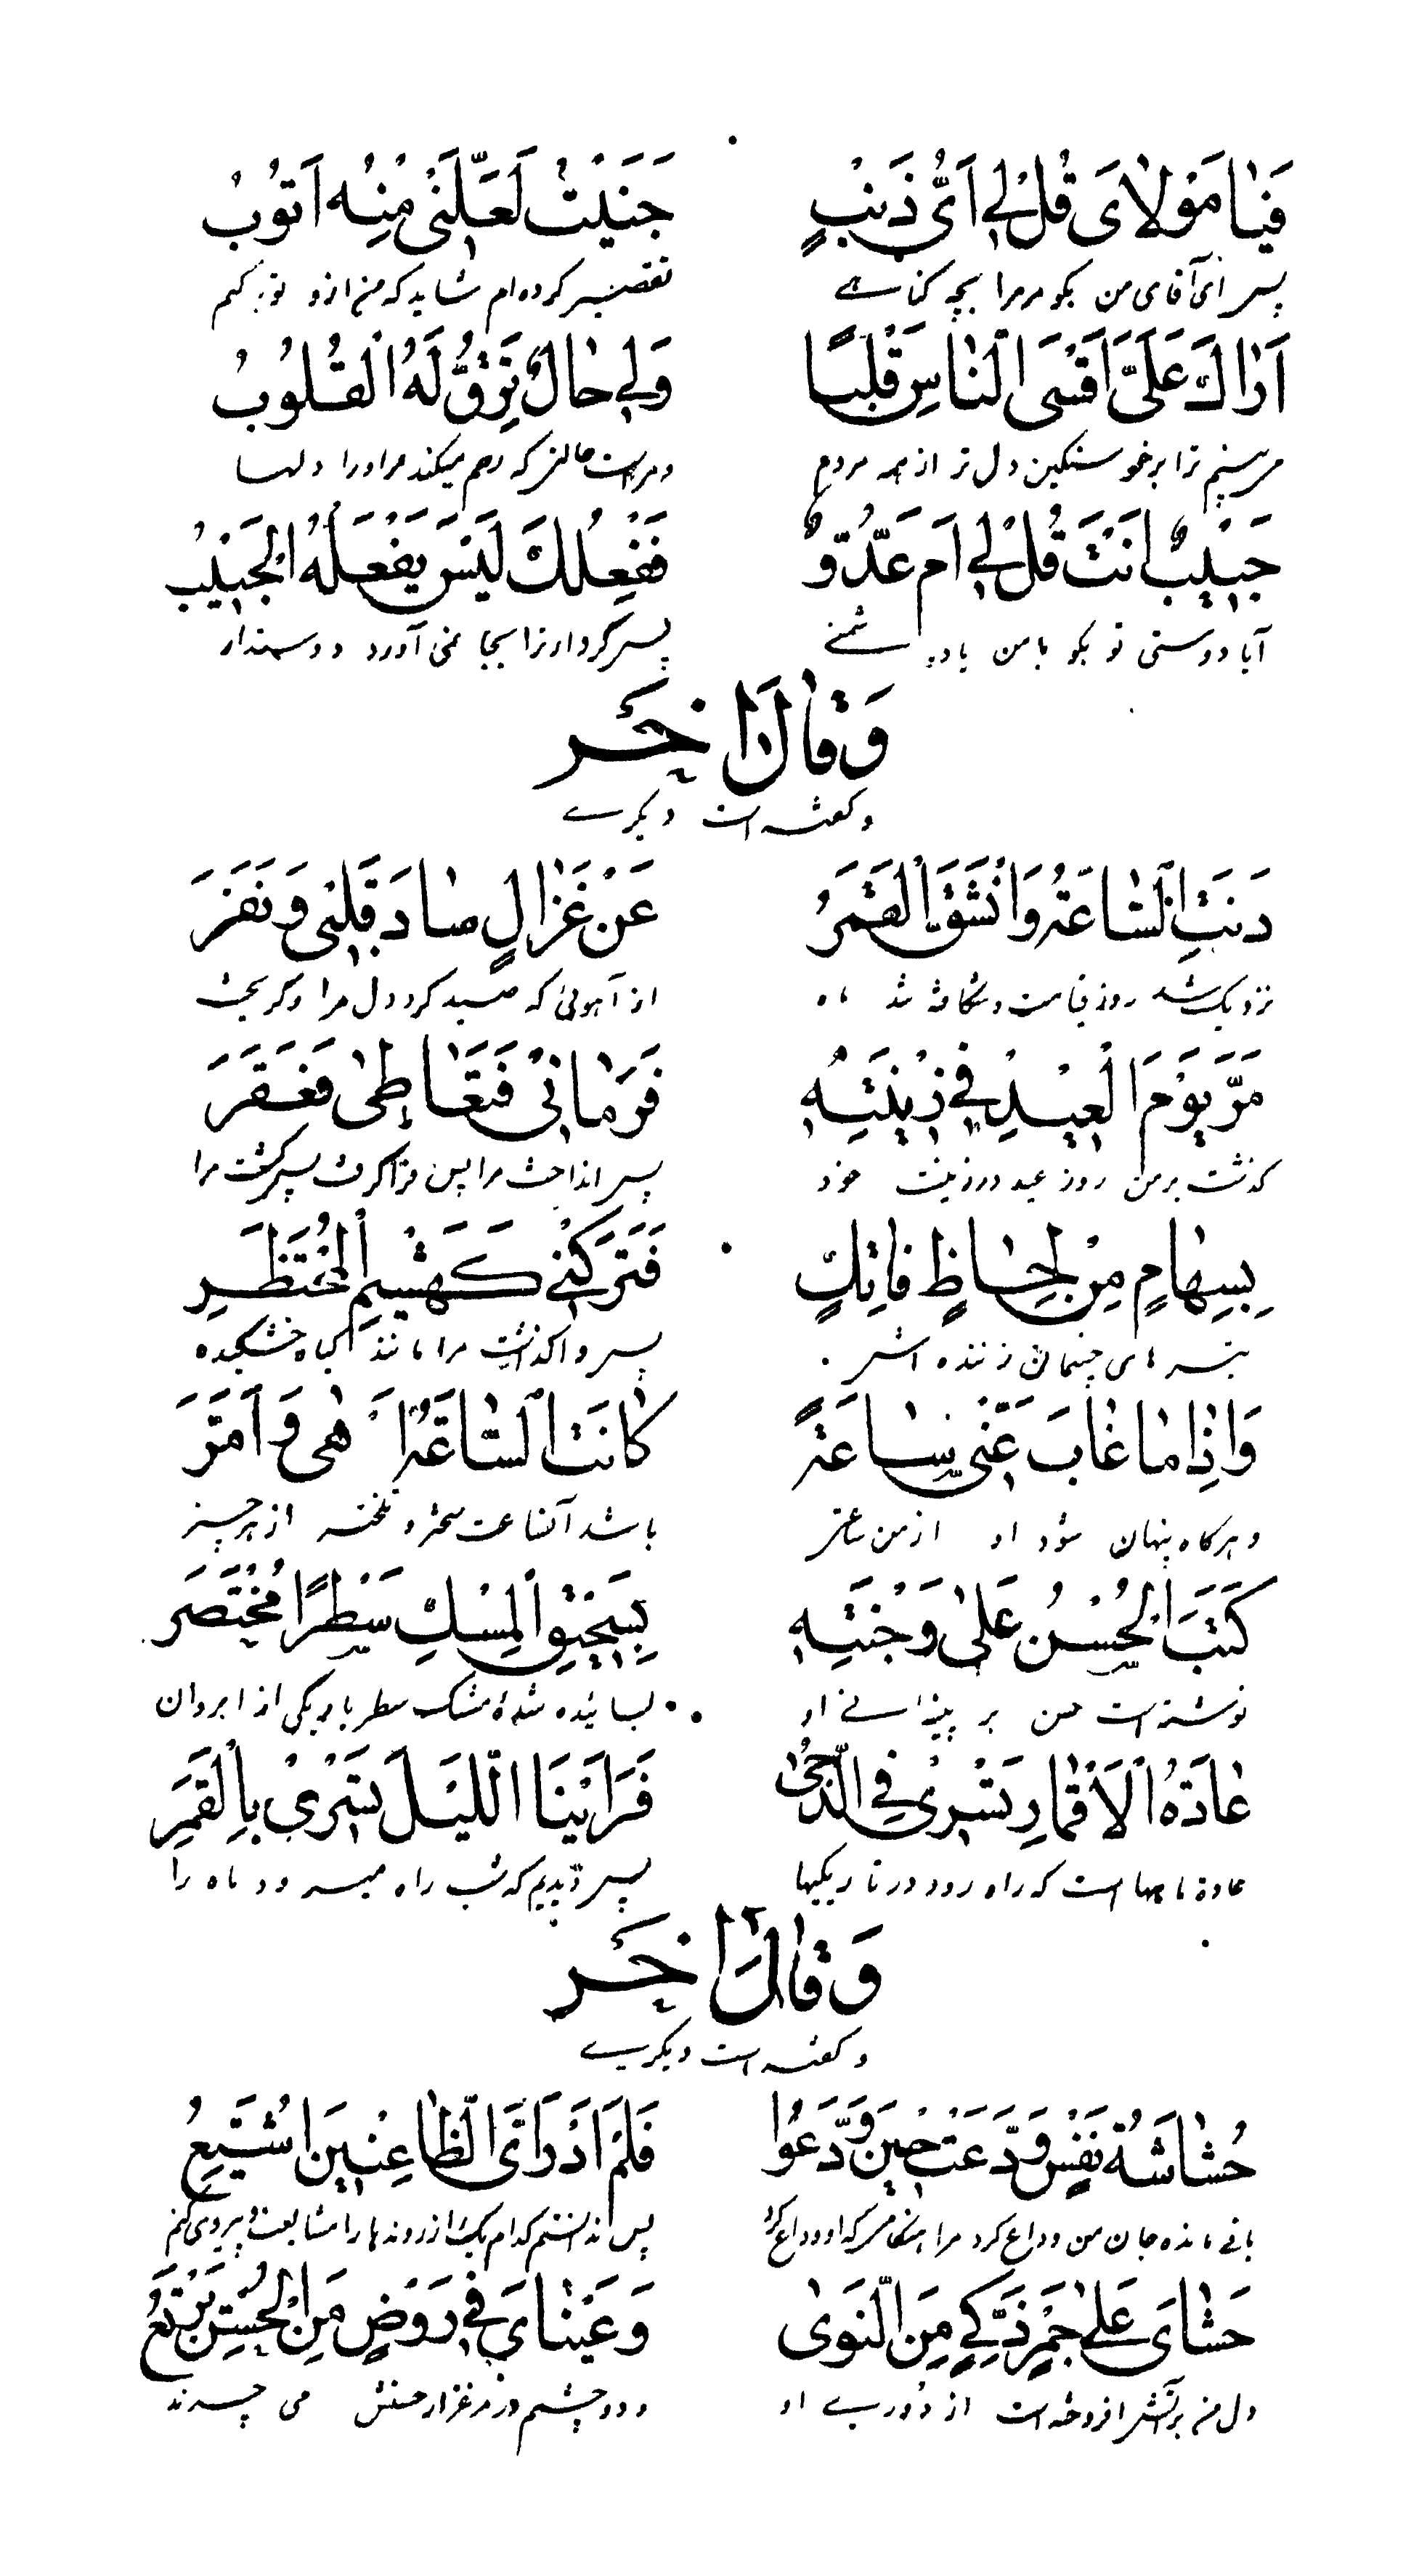 فَيَا مَوْلَايَ قُلْ لِي أَيُّ ذَنْبٍ جَنَيْتُ لَعَلَّنِي مِنْهُ أَتُوبُ
پس ای آقای من بگو مرمرا بچه گناهے تقصیر کرده‌ام شاید که من ازو توبه کنم
أَرَاكَ عَلَيَّ أَقْسَى النَّاسِ قَلْبًا وَلِي حَالٌ تَرِقُّ لَهُ الْقُلُوبُ
می‌بینم ترا برخود سنگین دل تر از همه مردم ومراست حالتی که رحم میکند مراورا دلها
حَبِيبٌ أَنْتَ قُلْ لِي أَمْ عَدُوٌّ فَفِعْلُكَ لَيْسَ يَفْعَلُهُ الْحَبِيبُ
آیا دوستی تو بگو بامن یا دشمنے پس کردار ترا بجا نمی آورد دوستدار
وَقَالَ آخَر
و گفته است دیگرے
دَنَتِ السَّاعَةُ وَانْشَقَّ الْقَمَرُ عَنْ غَزَالٍ صَادَ قَلْبِي وَنَفَرَ
نزدیک شد روز قیامت وشکافته شد ماه از آهوئی که صید کرد دل مرا وگریخت
مَرَّ يَوْمَ الْعِيدِ فِي زِينَتِهِ فَرَمَانِي فَتَعَاطَى فَعَقَرَ
گذشت برمن روز عید درزینت خود پس انداخت مرا پس فراگرفت پس کشت مرا
بِسِهَامٍ مِنْ لِحَاظٍ فَاتِكٍ فَتَرَكَنِي كَهَشِيمِ الْمُحْتَظِرِ
بتیر های چشمان زننده اش پس واگذاشت مرا مانند گیاه خشکیده
وَإِذَا مَا غَابَ عَنِّي سَاعَةً كَانَتِ السَّاعَةُ أَدْهَى وَأَمَرَّ
وهرگاه پنهان شود او ازمن ساعتی باشد آنساعت سخت و تلخ از هرچیز
كَتَبَ الْحُسْنُ عَلَى وَجْنَتِهِ بِسَحِيقِ الْمِسْكِ سَطْرًا مُخْتَصَرَ
نوشته است حسن بر او بسائیده شدهٔ مشک سطر باریکی از ابروان
عَادَةُ الْأَقْمَارِ تَسْرِي فِي الدُّجَى فَرَأَيْنَا اللَّيْلَ يَسْرِي بِالْقَمَرِ
عادة ماهها است که راه رود درتاریکیها پس دیدیم که شب راه میبرود ماه را
وَقَالَ آخَر
و گفته است دیگرے
حُشَاشَةُ نَفْسٍ وَدَّعَتْ حِينَ وَدَّعُوا فَلَمْ أَدْرِ أَيَّ الظَّاعِنِينَ أُشَيِّعُ
باقی مانده جان من وداع کرد مرا هنگامی که او وداع کرد پس ندانستم کدام یک از روندها را مشایعت و پیروی کنم
حَشَايَ عَلَى جَمْرٍ ذَكِيٍّ مِنَ النَّوَى وَعَيْنَايَ فِي رَوْضٍ مِنَ الْحُسْنِ تَرْتَعُ
دل من برآتش افروخته است از دوری او و دو چشم درمرغزار حسنش می چرند